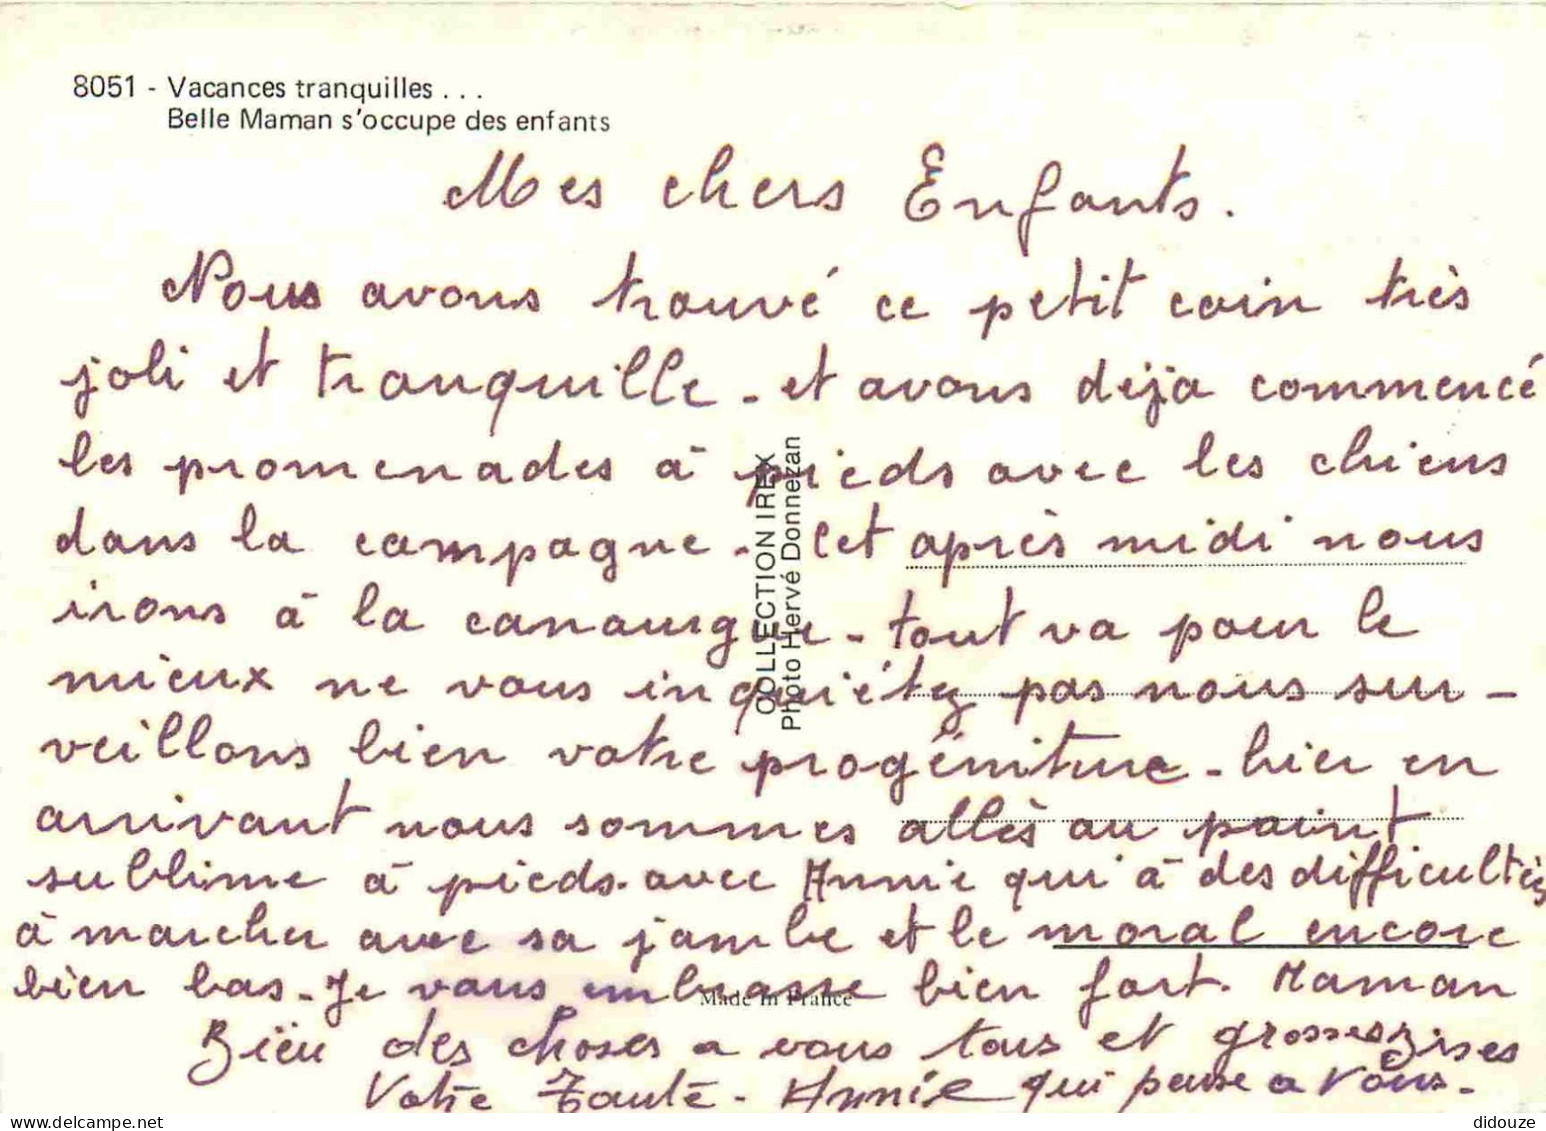 8051 - Vacances tranquilles . . .
Belle Maman s'occupe des enfants
Mes chers Enfants.
Nous avons trouvé ce petit coin très
joli et tranquille - et avons deja commencé
les promenades à pieds avec les chiens
dans la campagne - Cet après midi nous
irons à la canourgue - tout va pour le
mieux ne vous inquiétez pas nous sur-
veillons bien votre progéniture - hier en
arrivant nous sommes allès au point
sublime à pieds. avec Annie qui à des difficultés
à marcher avec sa jambe et le moral encore
bien bas - Je vous embrasse bien fort. Maman
Bien des choses a vous tous et grosses bises
Votre Tante - Annie qui pense a vous -
COLLECTION IREX
Photo Hervé Donnezan
Made in France
didouze